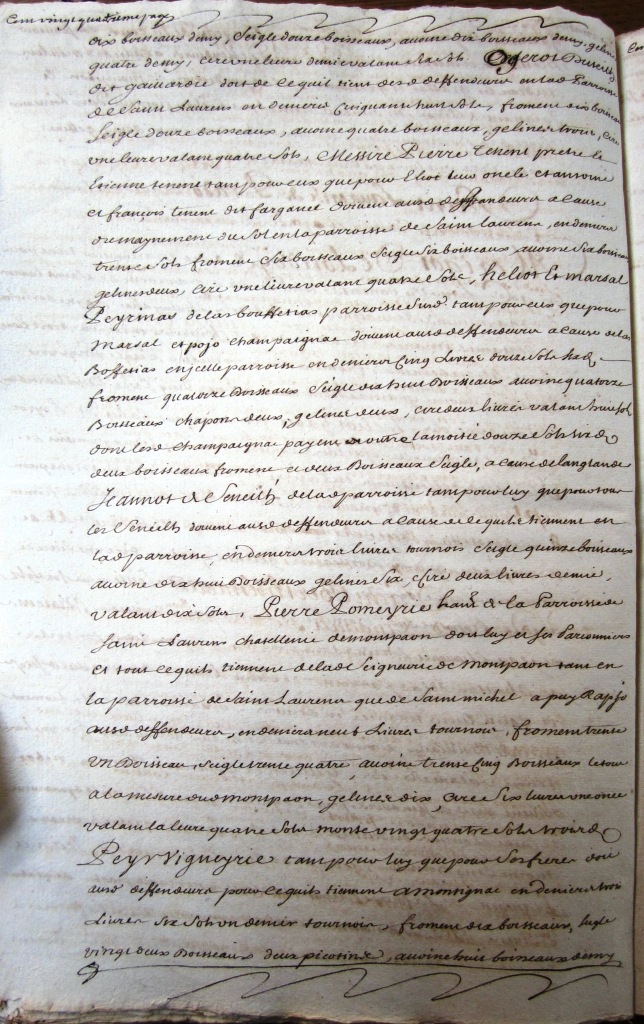 Cent vingt quatrieme page
dix boisseaux demy, seigle douze boisseaux, avoine dix boisseaux demy, gelines
quatre demy, cire une leure demie valant six sols. Ogerot Duseilh
dit gaulardie doit de ce quil tient desd deffendeurs en lad Parroisse
de Saint Laurens en deniers Cinquante huit sols, froment dix boisseaux
Seigle douze boisseaux, avoine quatre boisseaux, gelines trois, cire
une leure valant quatre sols, Messire Pierre tenent pretre le
Etienne tenent tam pour eux que pour Eliot leur oncle et antoine
et françois tenent dit farganet doivent ausd deffendeurs a cause
du maynement du Sol en la parroisse de Saint laurens, en deniers
trente sols froment six boisseaux seigle six boisseaux avoine six boisseaux
gelines deux, cire une liure valant quatre sols, heliot Et marsal
Peyrinas de las bouffetias parroisse susd tam pour eux que pour
marsal et pojo champaignac doivent ausd deffendeurs a cause de las
Boffetias en jcelle parroisse en deniers Cinq livres douze sols
froment quatorze Boisseaux seigle dix huit Boisseaux avoine quatorze
Boisseaux chapons deux, gelines deux, cire deux livres valant huit sols
dont lesd Champaignac payent en outre la moitié douze sols six d
deux boisseaux froment et deux Boisseaux seigle, a cause de langlande
Jeannot de Seneilh de lad parroisse tam pour luy que pour tous
les Seneilh doivent ausd deffendeurs a cause de ce quils tiennent en
lad parroisse, en deniers trois livres tournois seigle quinze boisseaux
avoine dix huit Boisseaux gelines six, cire deux livres demie,
valant dix sols, Pierre Pomeyrie hant de la Parroisse de
Saint Laurens chatellenie de montpaon doit luy et ses Parconniers
et tout ce quils tiennent de lad Seigneurie de Montpaon tant en
la parroisse de Saint Laurens que de Saint michel a puy
ausd deffendeurs, en deniers neuf Livres tournois, froment trente
un Boisseau, seigle trente quatre, avoine trente Cinq Boisseaux le tout
a la mesure dud montpaon, gelines dix, cire six livres une once
valant la leure quatre sols monte vingt quatre sols trois d
Peyr Vigneyrie tam pour luy que pour ses freres doit
ausd deffendeurs pour ce quils tiennent a montignac en deniers trois
Livres six sols un denier tournois, froment dix boisseaux, seigle
vingt deux Boisseaux deux picotins, avoine huit boisseaux demy